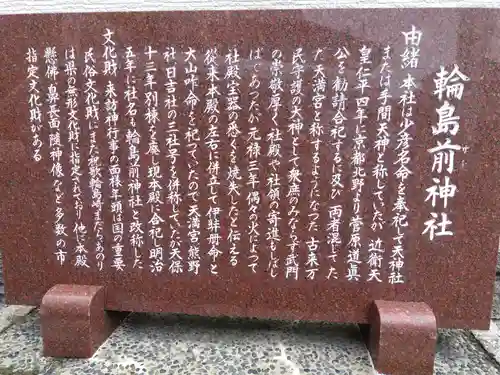 輪島前神社
由緒 本社は少彦名命を奉祀して天神社
または手間天神と称していたが 近衛天
皇仁平四年に京都北野より菅原道真
公を勧請合祀するに及び 両者混してた
だ天満宮と称するようになつた 古来万
民守護の天神として衆庶のみならず武門
の崇敬厚く社殿や社領の寄進もしばし
ばであつたが元禄三年偶々の火によつて
社殿宝器の悉くを焼失したと伝える
従来本殿の左右に併立して伊弉冊命と
大山咋命を祀つていたので天満宮熊野
社日吉社の三社号を併称していたが天保
十三年別棟を廃し現本殿に合祀し明治
五年に社名も輪島前神社と改称した
文化財 来訪神行事の面様年頭は国の重要
民俗文化財にまた祝歌輪島崎まだらあのり
は県の無形文化財に指定されており 他に本殿
懸佛 鼻長面 随神像など 多数の市
指定文化財がある